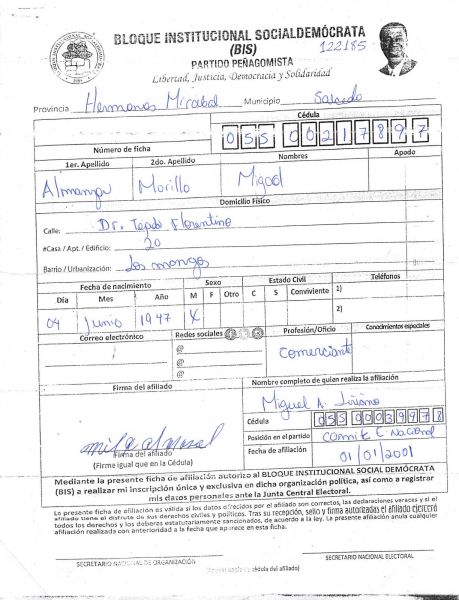 BLOQUE INSTITUCIONAL SOCIALDEMÓCRATA
(BIS)
122185
PARTIDO PEÑAGOMISTA
Libertad, Justicia, Democracia y Solidaridad
Provincia Hermanas Mirabal Municipio Salcedo
Cédula
Número de ficha 055 00217897
1er. Apellido 2do. Apellido Nombres Apodo
Almanzar Morillo Miguel
Domicilio Físico
Calle: Dr. Tejada Florentino
#Casa / Apt. / Edificio: 20
Barrio / Urbanización: Los mangos
Fecha de nacimiento Sexo Estado Civil Teléfonos
Día Mes Año M F Otro C S Conviviente 1)
2)
04 Junio 1947 X
Correo electrónico Redes sociales Profesión/Oficio Conocimientos especiales
@
@
@
Comerciante
Firma del afiliado Nombre completo de quien realiza la afiliación
Miguel A. Liriano
Cédula 055 00039978
Posición en el partido Comite E. Nacional
Firma del afiliado
(Firme igual que en la Cédula)
Fecha de afiliación 01/01/2001
Mediante la presente ficha de afiliación autorizo al BLOQUE INSTITUCIONAL SOCIAL DEMÓCRATA
(BIS) a realizar mi inscripción única y exclusiva en dicha organización política, así como a registrar
mis datos personales ante la Junta Central Electoral.
La presente ficha de afiliación es válida si los datos ofrecidos por el afiliado son correctos, las declaraciones veraces y si el
afiliado tiene el disfrute de sus derechos civiles y políticos. Tras su recepción, sello y firma autorizadas el afiliado ejercerá
todos los derechos y los deberes estatutariamente sancionados, de acuerdo a la ley. La presente afiliación anula cualquier
afiliación realizada con anterioridad a la fecha que aparece en esta ficha.
SECRETARIO NACIONAL DE ORGANIZACIÓN SECRETARIO NACIONAL ELECTORAL
cédula del afiliado)